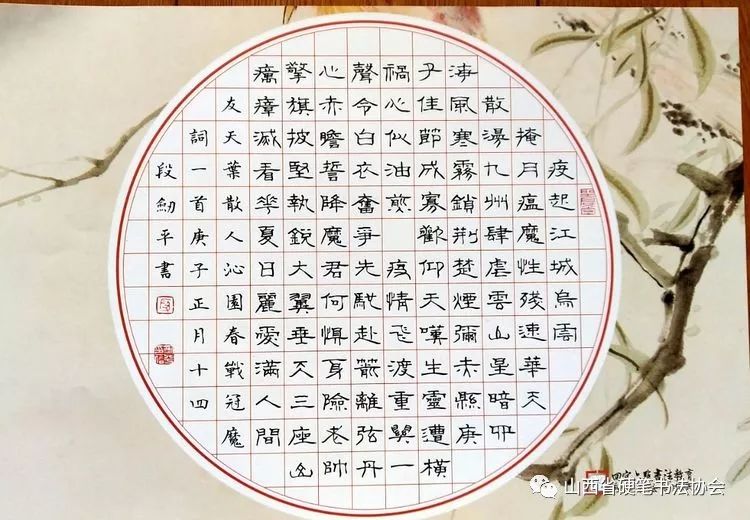 疫起江城烏雲
掩月瘟魔性殘速華天
散湯九州肆虐雲山星暗卯
海風寒霧鎖荆楚煙彌赤縣庚
子佳節成寡歡仰天嘆生靈遭橫
禍心似油煎 疫情飛渡重巽一
聲令白衣奮爭先馳赴箭離弦丹
心赤膽誓降魔君何懼耳險老帥
擎旗披堅執銳大翼垂天三座山
癘瘴滅看華夏日麗愛滿人間
友天葉散人沁園春戰冠魔
詞一首庚子正月十四
段劒平書
山西省硬笔书法协会